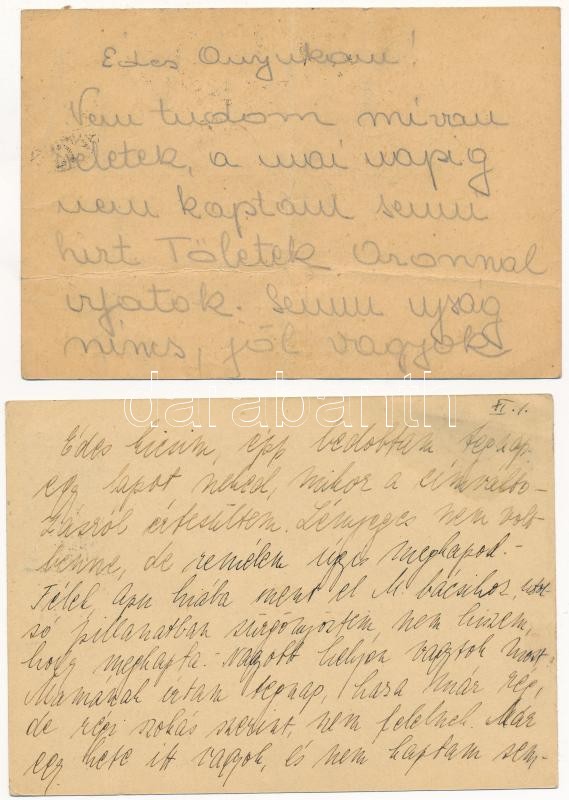 Édes Anyukám!
Nem tudom mivan
veletek, a mai napig
nem kaptam semmi
hirt Töletek Azonnal
irjatok. Semmi ujság
nincs, jól vagyok
darabanth
XI. 1.
Édes kicsim, épp bedobtam tegnap
egy lapot neked, mikor a címválto-
zásról értesültem. Lényeges nem volt
benne, de remélem úgyis megkapod.-
Félek, Apu hiába ment el M. bácsihoz, utol-
só pillanatban sürgönyöztem, nem hiszem,
hogy megkapta.- Nagyobb helyen vagytok most?
Mamának írtam tegnap, haza már rég,
de régi szokás szerint, nem felelnek. Már
egy hete itt vagyok, és nem kaptam sem-